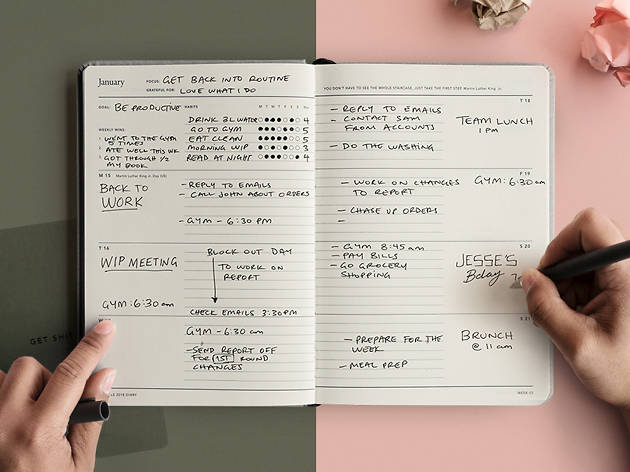 January
FOCUS: GET BACK INTO ROUTINE
GRATEFUL FOR: LOVE WHAT I DO
GOAL: BE PRODUCTIVE
HABITS
M T W T F S S
DRINK 3L WATER 4
WEEKLY WINS:
GO TO GYM 5
1 WENT TO THE GYM 5 TIMES
EAT CLEAN 5
2 ATE WELL THIS WK
MORNING WIP 3
3 GOT THROUGH 1/2 MY BOOK
READ AT NIGHT 4
M 15 Martin Luther King Jr. Day (US)
BACK TO
WORK
- REPLY TO EMAILS
- CALL JOHN ABOUT ORDERS
- GYM - 6:30 PM
T 16
WIP MEETING
GYM: 6:30 am
BLOCK OUT DAY
TO WORK ON
REPORT
CHECK EMAILS 3:30PM
GYM - 6:30 am
- SEND REPORT OFF
FOR 1ST ROUND
CHANGES
2018 DIARY
GET SHI
YOU DON'T HAVE TO SEE THE WHOLE STAIRCASE, JUST TAKE THE FIRST STEP. Martin Luther King Jr.
T 18
- REPLY TO EMAILS
- CONTACT SAM
FROM ACCOUNTS
- DO THE WASHING
TEAM LUNCH
1 PM
F 19
- WORK ON CHANGES
TO REPORT
- CHASE UP ORDERS
-
GYM: 6:30 am
S 20
- GYM 8:45 am
- PAY BILLS
- GO GROCERY
SHOPPING
JESSE'S
Bday 7
S 21
- PREPARE FOR THE
WEEK
- MEAL PREP
BRUNCH
@ 11 am
WEEK 03